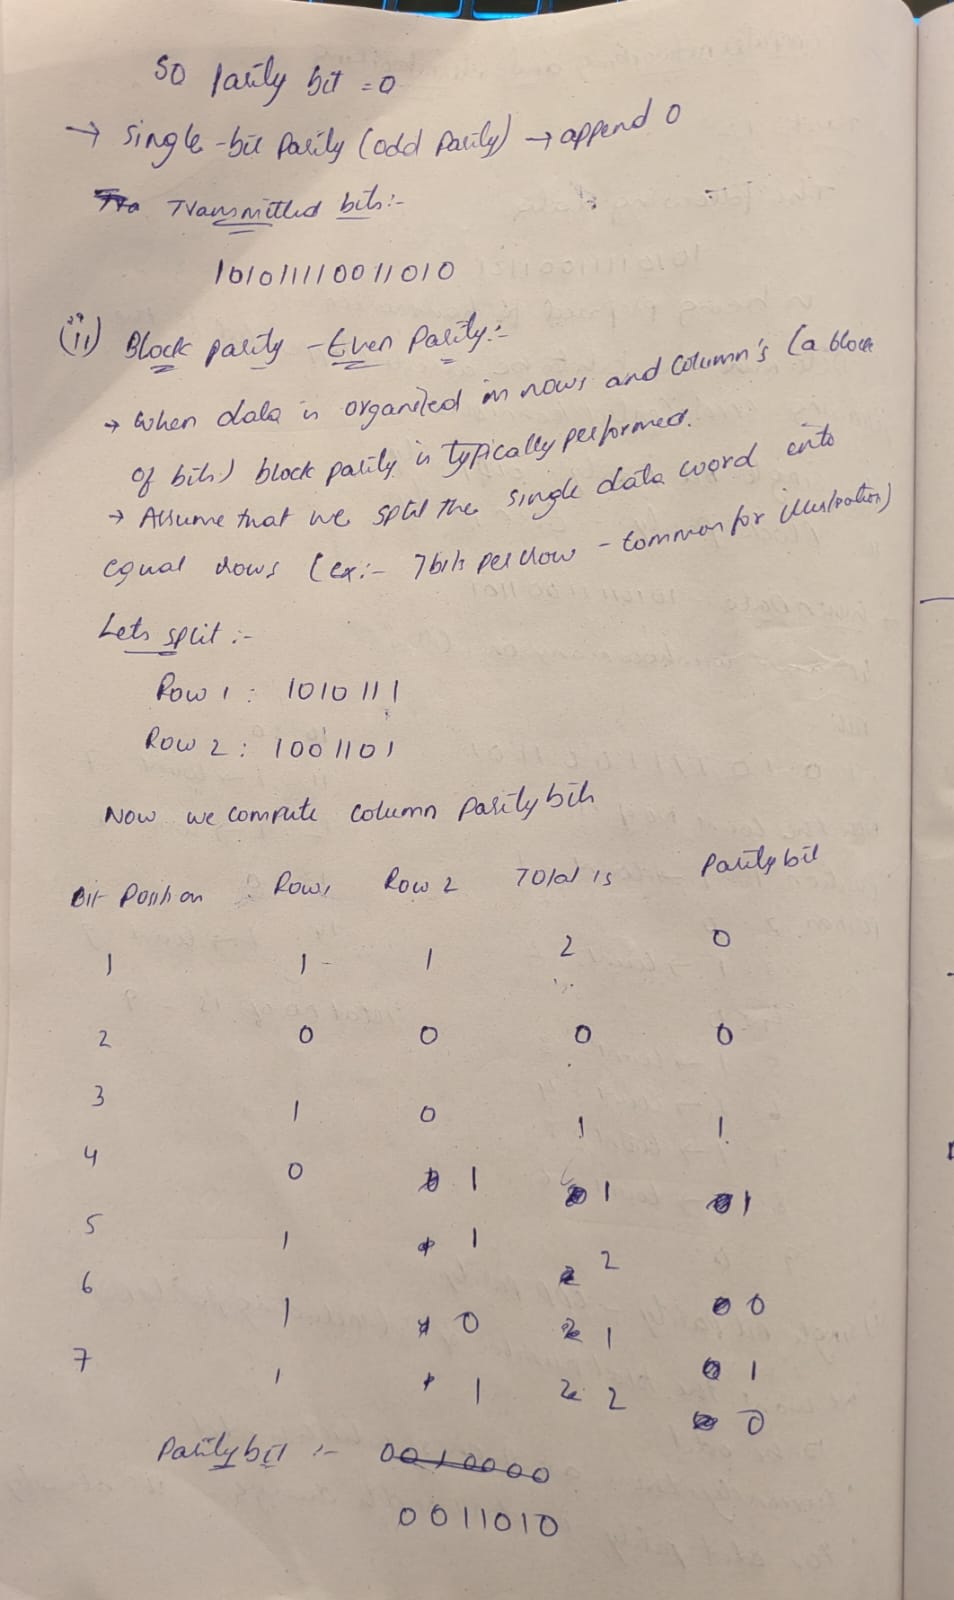 So Parity bit = 0
→ Single-bit Parity (odd Parity) → append 0
Transmitted bits:-
101011110011010
(ii) Block parity - Even Parity:-
→ When data is organized in rows and column's (a block
of bits) block parity is typically performed.
→ Assume that we split the single data word into
equal rows (ex:- 7 bits per row - common for illustration)
Lets split :-
Row 1 : 1010111
Row 2 : 1001101
Now we compute column parity bits
Bit Position Row 1 Row 2 Total 1s Parity bit
1 1 1 2 0
2 0 0 0 0
3 1 0 1 1
4 0 1 1 1
5 1 1 2 0
6 1 0 1 1
7 1 1 2 0
Parity bit :- 0010000
0011010